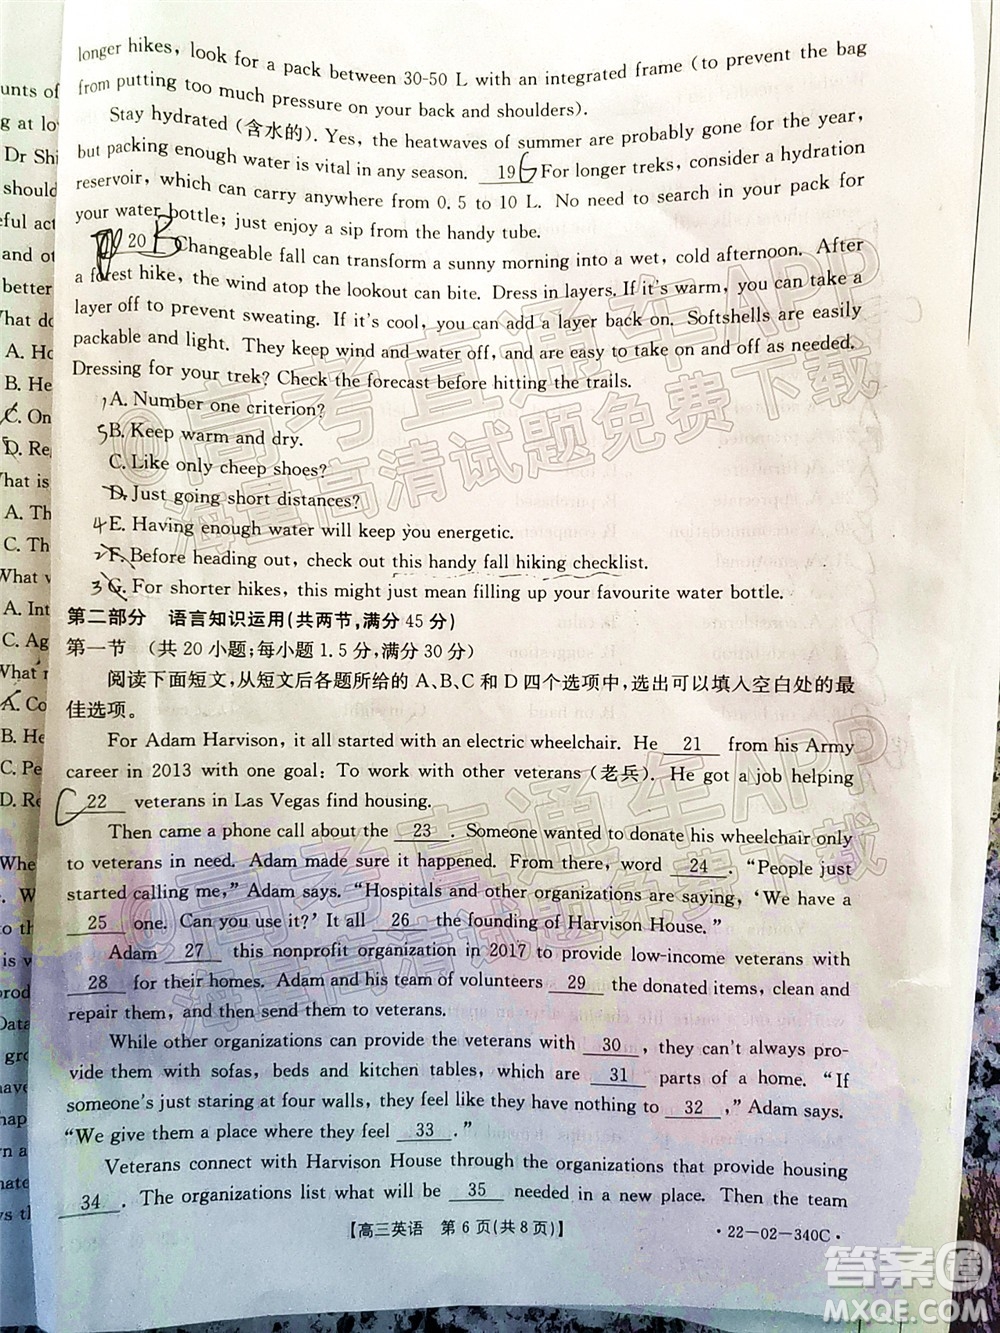 longer hikes, look for a pack between 30-50 L with an integrated frame (to prevent the bag
from putting too much pressure on your back and shoulders).
Stay hydrated (含水的). Yes, the heatwaves of summer are probably gone for the year,
but packing enough water is vital in any season. 19 G For longer treks, consider a hydration
reservoir, which can carry anywhere from 0.5 to 10 L. No need to search in your pack for
your water bottle; just enjoy a sip from the handy tube.
20 B Changeable fall can transform a sunny morning into a wet, cold afternoon. After
a forest hike, the wind atop the lookout can bite. Dress in layers. If it's warm, you can take a
layer off to prevent sweating. If it's cool, you can add a layer back on. Softshells are easily
packable and light. They keep wind and water off, and are easy to take on and off as needed.
Dressing for your trek? Check the forecast before hitting the trails.
A. Number one criterion?
5 B. Keep warm and dry.
C. Like only cheep shoes?
D. Just going short distances?
4 E. Having enough water will keep you energetic.
2 F. Before heading out, check out this handy fall hiking checklist.
3 G. For shorter hikes, this might just mean filling up your favourite water bottle.
第二部分 语言知识运用(共两节,满分 45 分)
第一节 (共 20 小题;每小题 1.5 分,满分 30 分)
阅读下面短文,从短文后各题所给的 A、B、C 和 D 四个选项中,选出可以填入空白处的最
佳选项。
For Adam Harvison, it all started with an electric wheelchair. He 21 from his Army
career in 2013 with one goal: To work with other veterans (老兵). He got a job helping
C 22 veterans in Las Vegas find housing.
Then came a phone call about the 23 . Someone wanted to donate his wheelchair only
to veterans in need. Adam made sure it happened. From there, word 24 . “People just
started calling me,” Adam says. “Hospitals and other organizations are saying, ‘We have a
25 one. Can you use it?’ It all 26 the founding of Harvison House.”
Adam 27 this nonprofit organization in 2017 to provide low-income veterans with
28 for their homes. Adam and his team of volunteers 29 the donated items, clean and
repair them, and then send them to veterans.
While other organizations can provide the veterans with 30 , they can't always pro-
vide them with sofas, beds and kitchen tables, which are 31 parts of a home. “If
someone's just staring at four walls, they feel like they have nothing to 32 ,” Adam says.
“We give them a place where they feel 33 .”
Veterans connect with Harvison House through the organizations that provide housing
34 . The organizations list what will be 35 needed in a new place. Then the team
【高三英语 第 6 页(共 8 页)】
·22-02-340C·
unts of
g at lo
Dr Shi
should
eful act
and ot
better
What do
A. Ho
B. He
C. On
D. Re
What is
A. Th
C. The
What v
A. Int
C. Ag
What r
A. Co
B. He
C. Pe
D. Re
高考直通车APP
海量高清试题免费下载
高考直通车APP
海量高清试题免费下载
答案圈
MXQE.COM